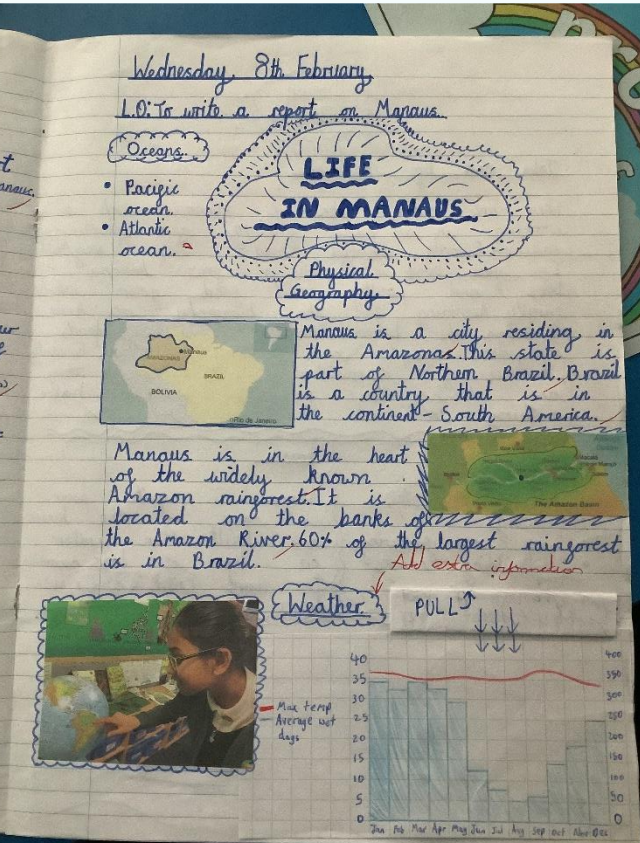 Wednesday 8th February
L.O: To write a report on Manaus.
Oceans.
• Pacific
ocean.
• Atlantic
ocean.
LIFE
IN MANAUS
Physical
Geography
Manaus is a city residing in
the Amazonas. This state is
part of Northern Brazil. Brazil
is a country that is in
the continent - South America.
AMAZONAS
Manaus
BRAZIL
BOLIVIA
Rio de Janeiro
Manaus is in the heart
of the widely known
Amazon rainforest. It is
located on the banks of
the Amazon River. 60% of the largest rainforest
is in Brazil.
The Amazon Basin
Add extra information
Weather
PULL
Max temp
Average wet
days
40
35
30
25
20
15
10
5
0
400
350
300
250
200
150
100
50
0
Jan Feb Mar Apr May Jun Jul Aug Sep Oct Nov Dec